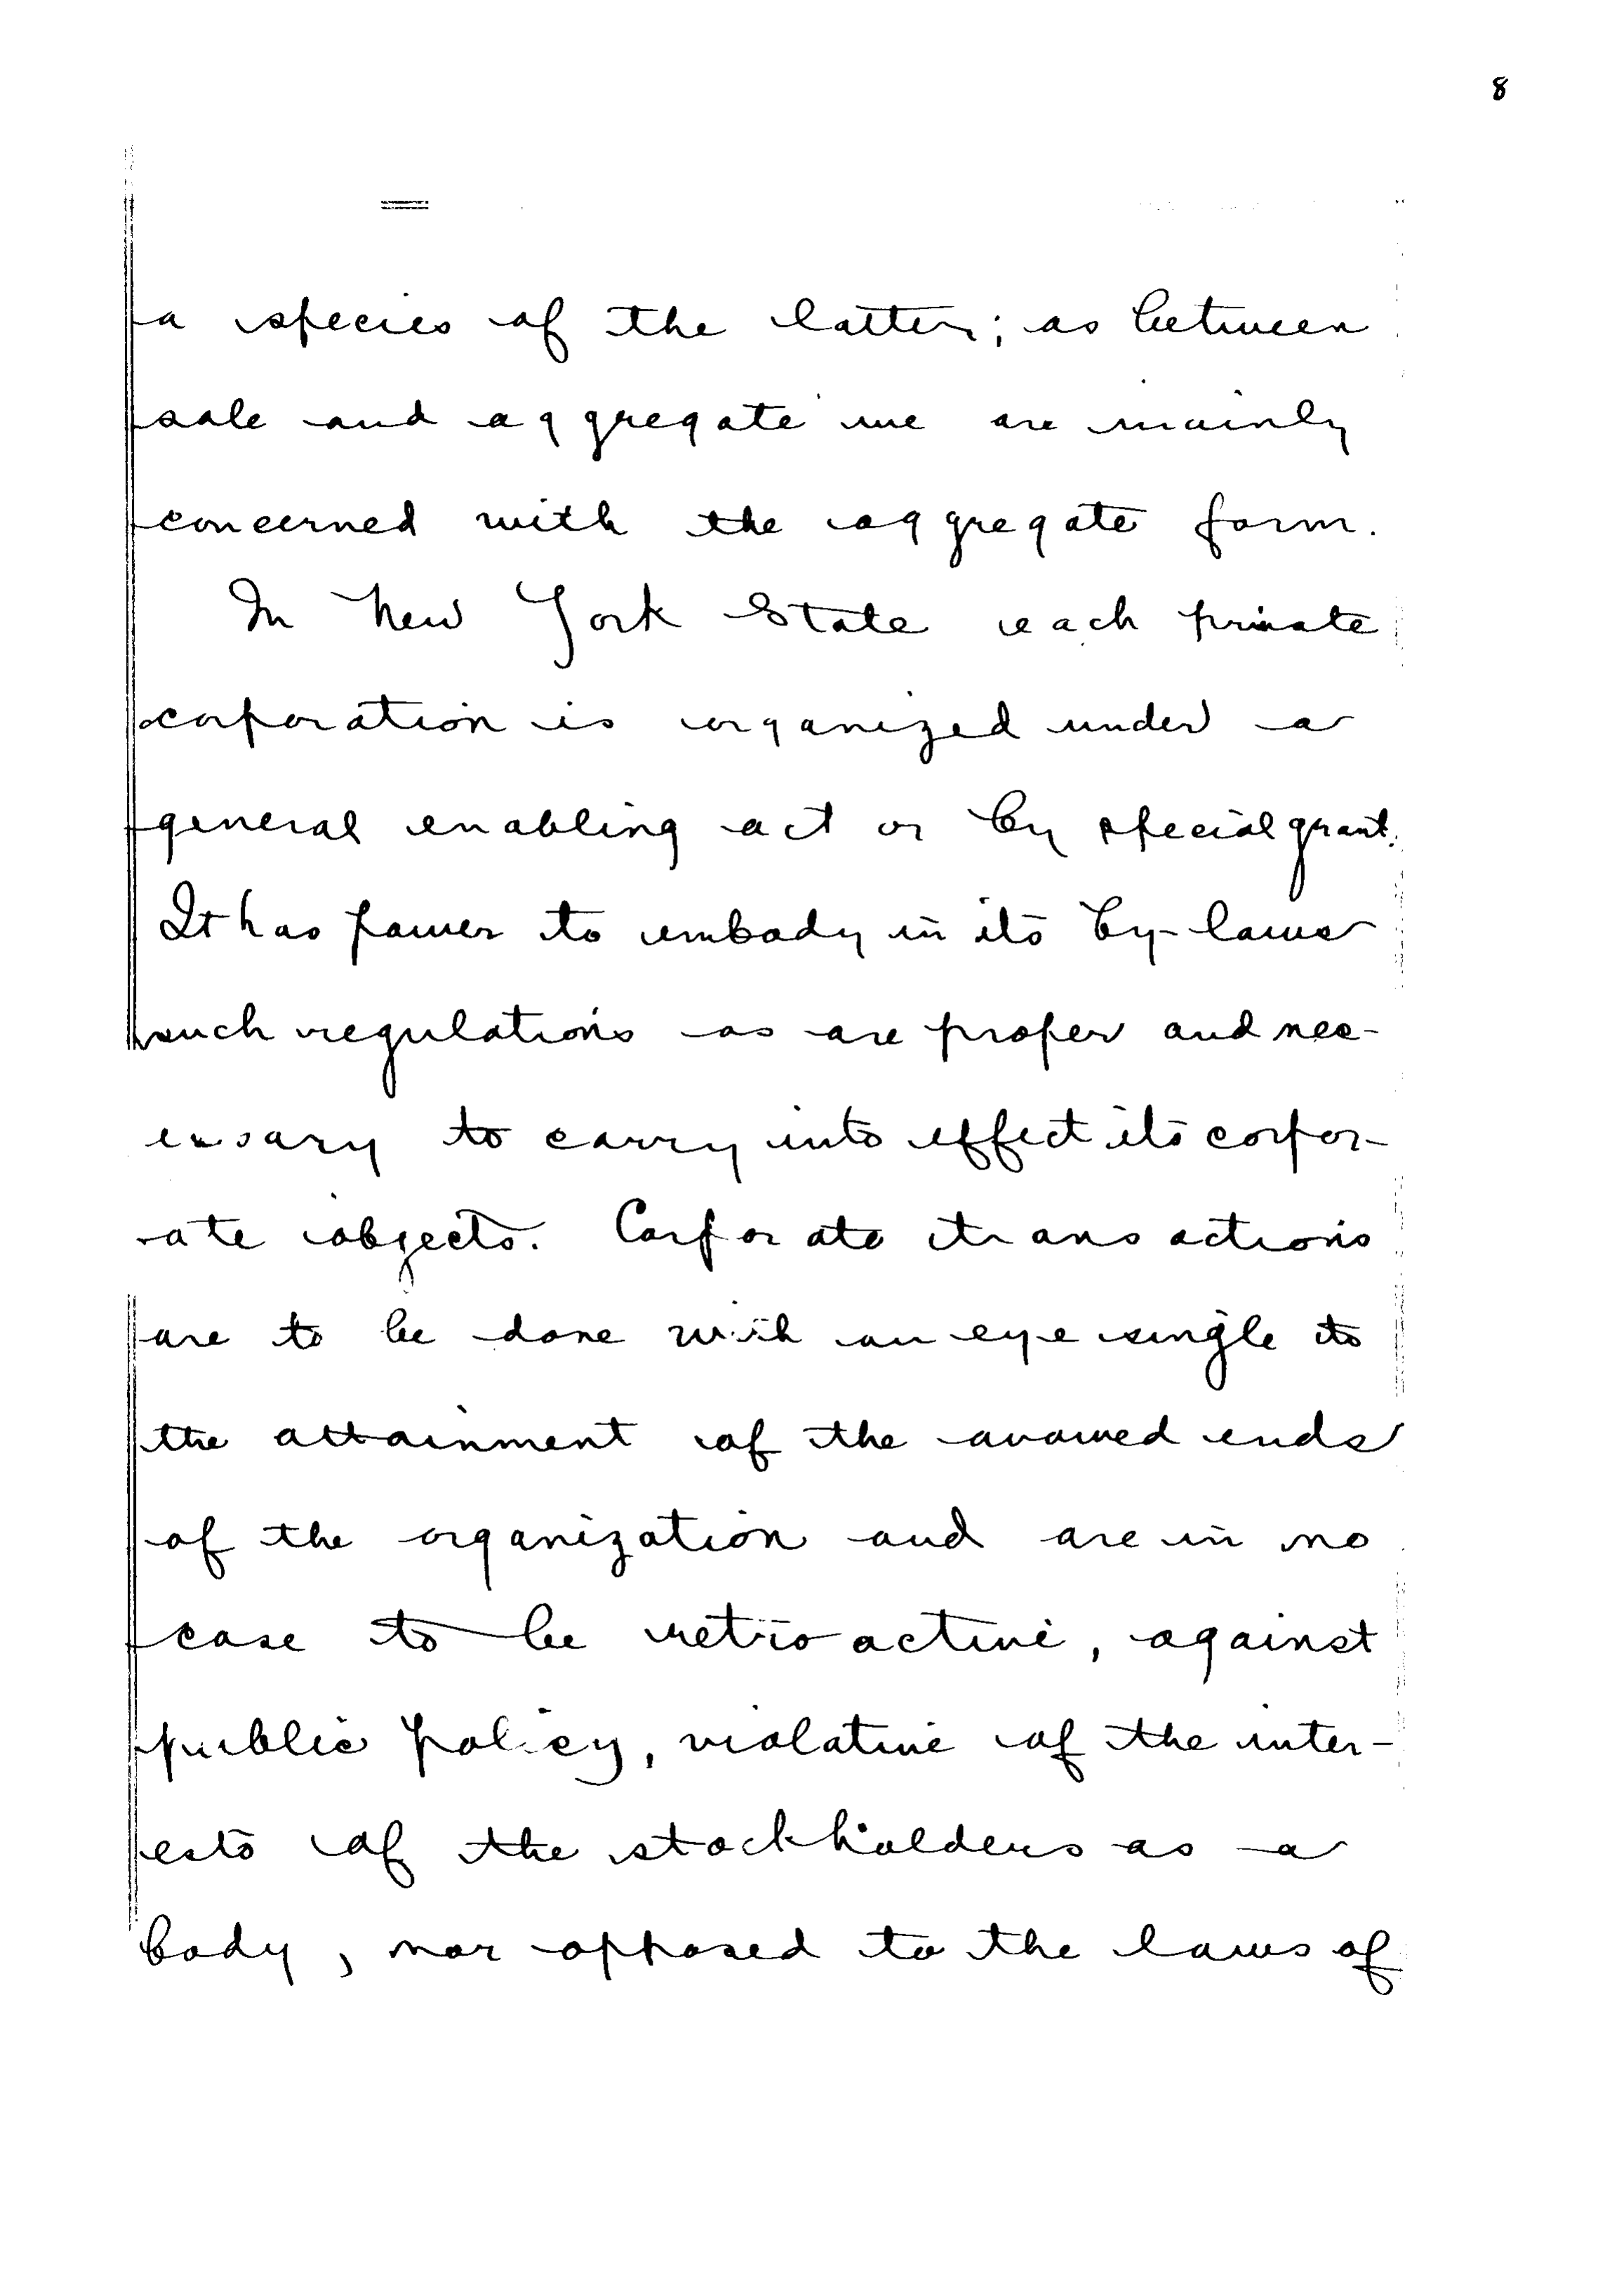 8
a species of the latter; as between
sole and aggregate we are mainly
concerned with the aggregate form.
In New York State each private
corporation is organized under a
general enabling act or by special grant.
It has power to embody in its by-laws
such regulations as are proper and nec-
essary to carry into effect its corpor-
ate objects. Corporate transactions
are to be done with an eye single to
the attainment of the avowed ends
of the organization and are in no
case to be retroactive, against
public policy, violative of the inter-
ests of the stockholders as a
body, nor opposed to the laws of